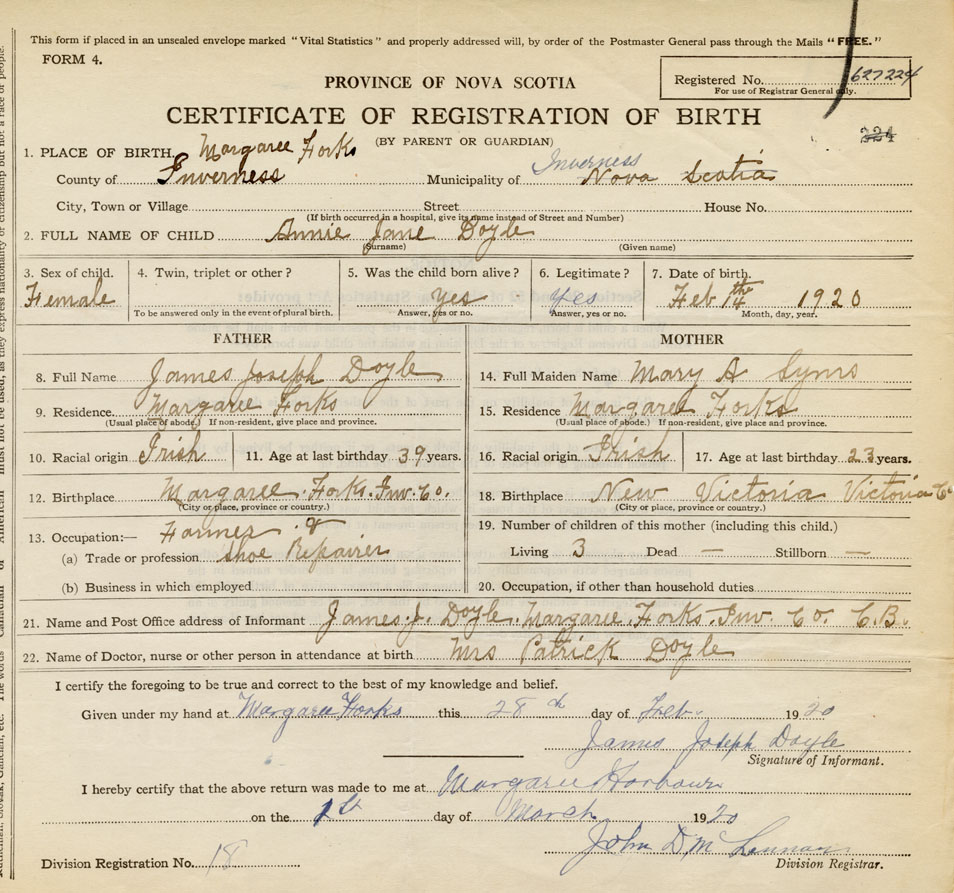 This form if placed in an unsealed envelope marked "Vital Statistics" and properly addressed will, by order of the Postmaster General pass through the Mails "FREE."
FORM 4.
PROVINCE OF NOVA SCOTIA
Registered No. 627224
For use of Registrar General only.
CERTIFICATE OF REGISTRATION OF BIRTH
(BY PARENT OR GUARDIAN)
324
1. PLACE OF BIRTH Margaree Forks
Inverness
County of Inverness Municipality of Nova Scotia
City, Town or Village Street House No.
(If birth occurred in a hospital, give its name instead of Street and Number)
2. FULL NAME OF CHILD Annie Jane Doyle
(Surname) (Given name)
3. Sex of child. 4. Twin, triplet or other? 5. Was the child born alive? 6. Legitimate? 7. Date of birth.
Female Yes Yes Feb 14th 1920
To be answered only in the event of plural birth. Answer, yes or no. Answer, yes or no. Month, day, year.
FATHER MOTHER
8. Full Name James Joseph Doyle 14. Full Maiden Name Mary A Syms
9. Residence. Margaree Forks 15. Residence Margaree Forks
(Usual place of abode.) If non-resident, give place and province. (Usual place of abode.) If non-resident, give place and province.
10. Racial origin Irish 11. Age at last birthday 39 years. 16. Racial origin Irish 17. Age at last birthday 23 years.
12. Birthplace Margaree Forks. Inv. Co. 18. Birthplace New Victoria Victoria Co
(City or place, province or country.) (City or place, province or country.)
13. Occupation:— Farmer & 19. Number of children of this mother (including this child.)
(a) Trade or profession Shoe Repairer Living 3 Dead — Stillborn —
(b) Business in which employed 20. Occupation, if other than household duties
21. Name and Post Office address of Informant James. J. Doyle. Margaree. Forks. Inv. Co. C.B.
22. Name of Doctor, nurse or other person in attendance at birth Mrs Patrick Doyle
I certify the foregoing to be true and correct to the best of my knowledge and belief.
Given under my hand at Margaree Forks this 28th day of Feb. 1920
James Joseph Doyle
Signature of Informant.
I hereby certify that the above return was made to me at Margaree Harbour
on the 1st day of March 1920
John D. McLennan
Division Registration No. 18 Division Registrar.